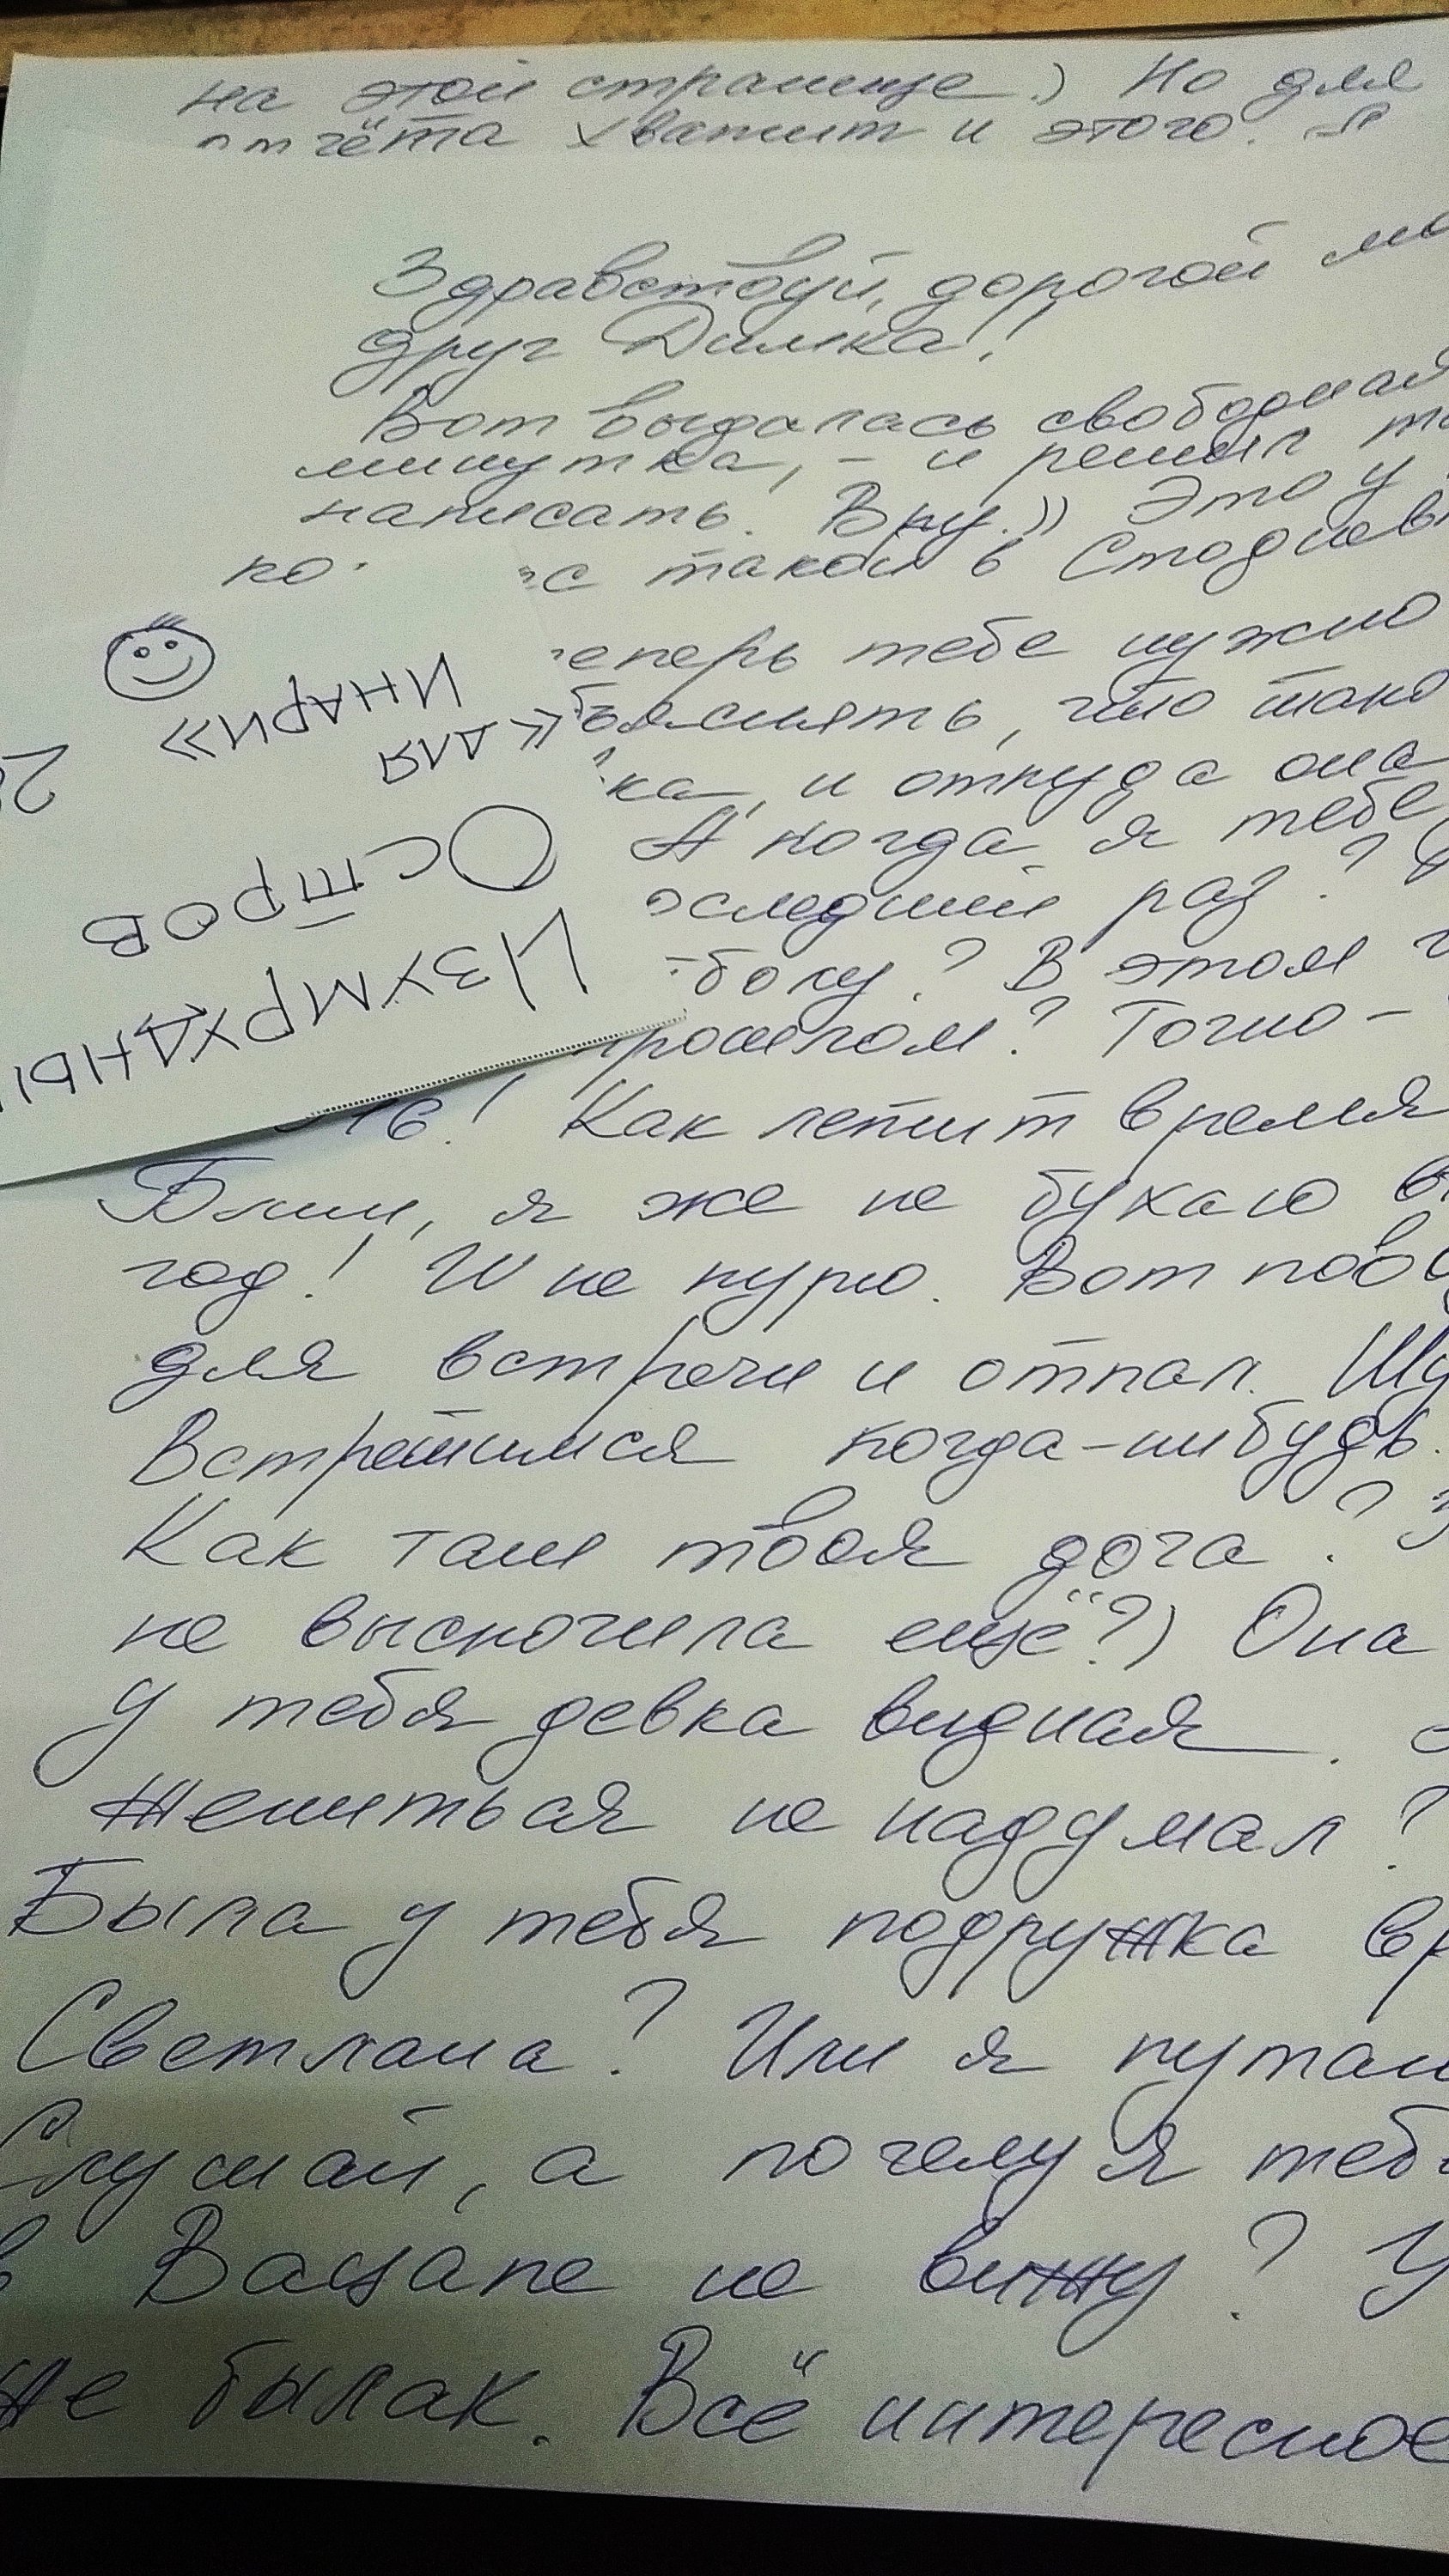 на этой странице.) Но для
отчёта хватит и этого.
Здравствуй, дорогой
друг Димка!
Вот выдалась свободная
минутка, - и решил
написать. Вру.)) Это у
такой в
теперь тебе нужно
объяснять, что
и откуда она
А когда я тебе
последний раз?
В этом
прошлом? Точно -
16! Как летит время
Блин, я же не бухаю
год! И не курю. Вот
для встречи и отпал.
Встретимся когда-нибудь.
Как там твоя доча?
не выскочила ещё?) Она
у тебя девка видная.
Жениться не надумал?
Была у тебя подружка
Светлана? Или я
Слушай, а почему я
в Вацапе не вижу? У
не былак. Всё интересное
Изумрудный
Остров
«для
Инари»